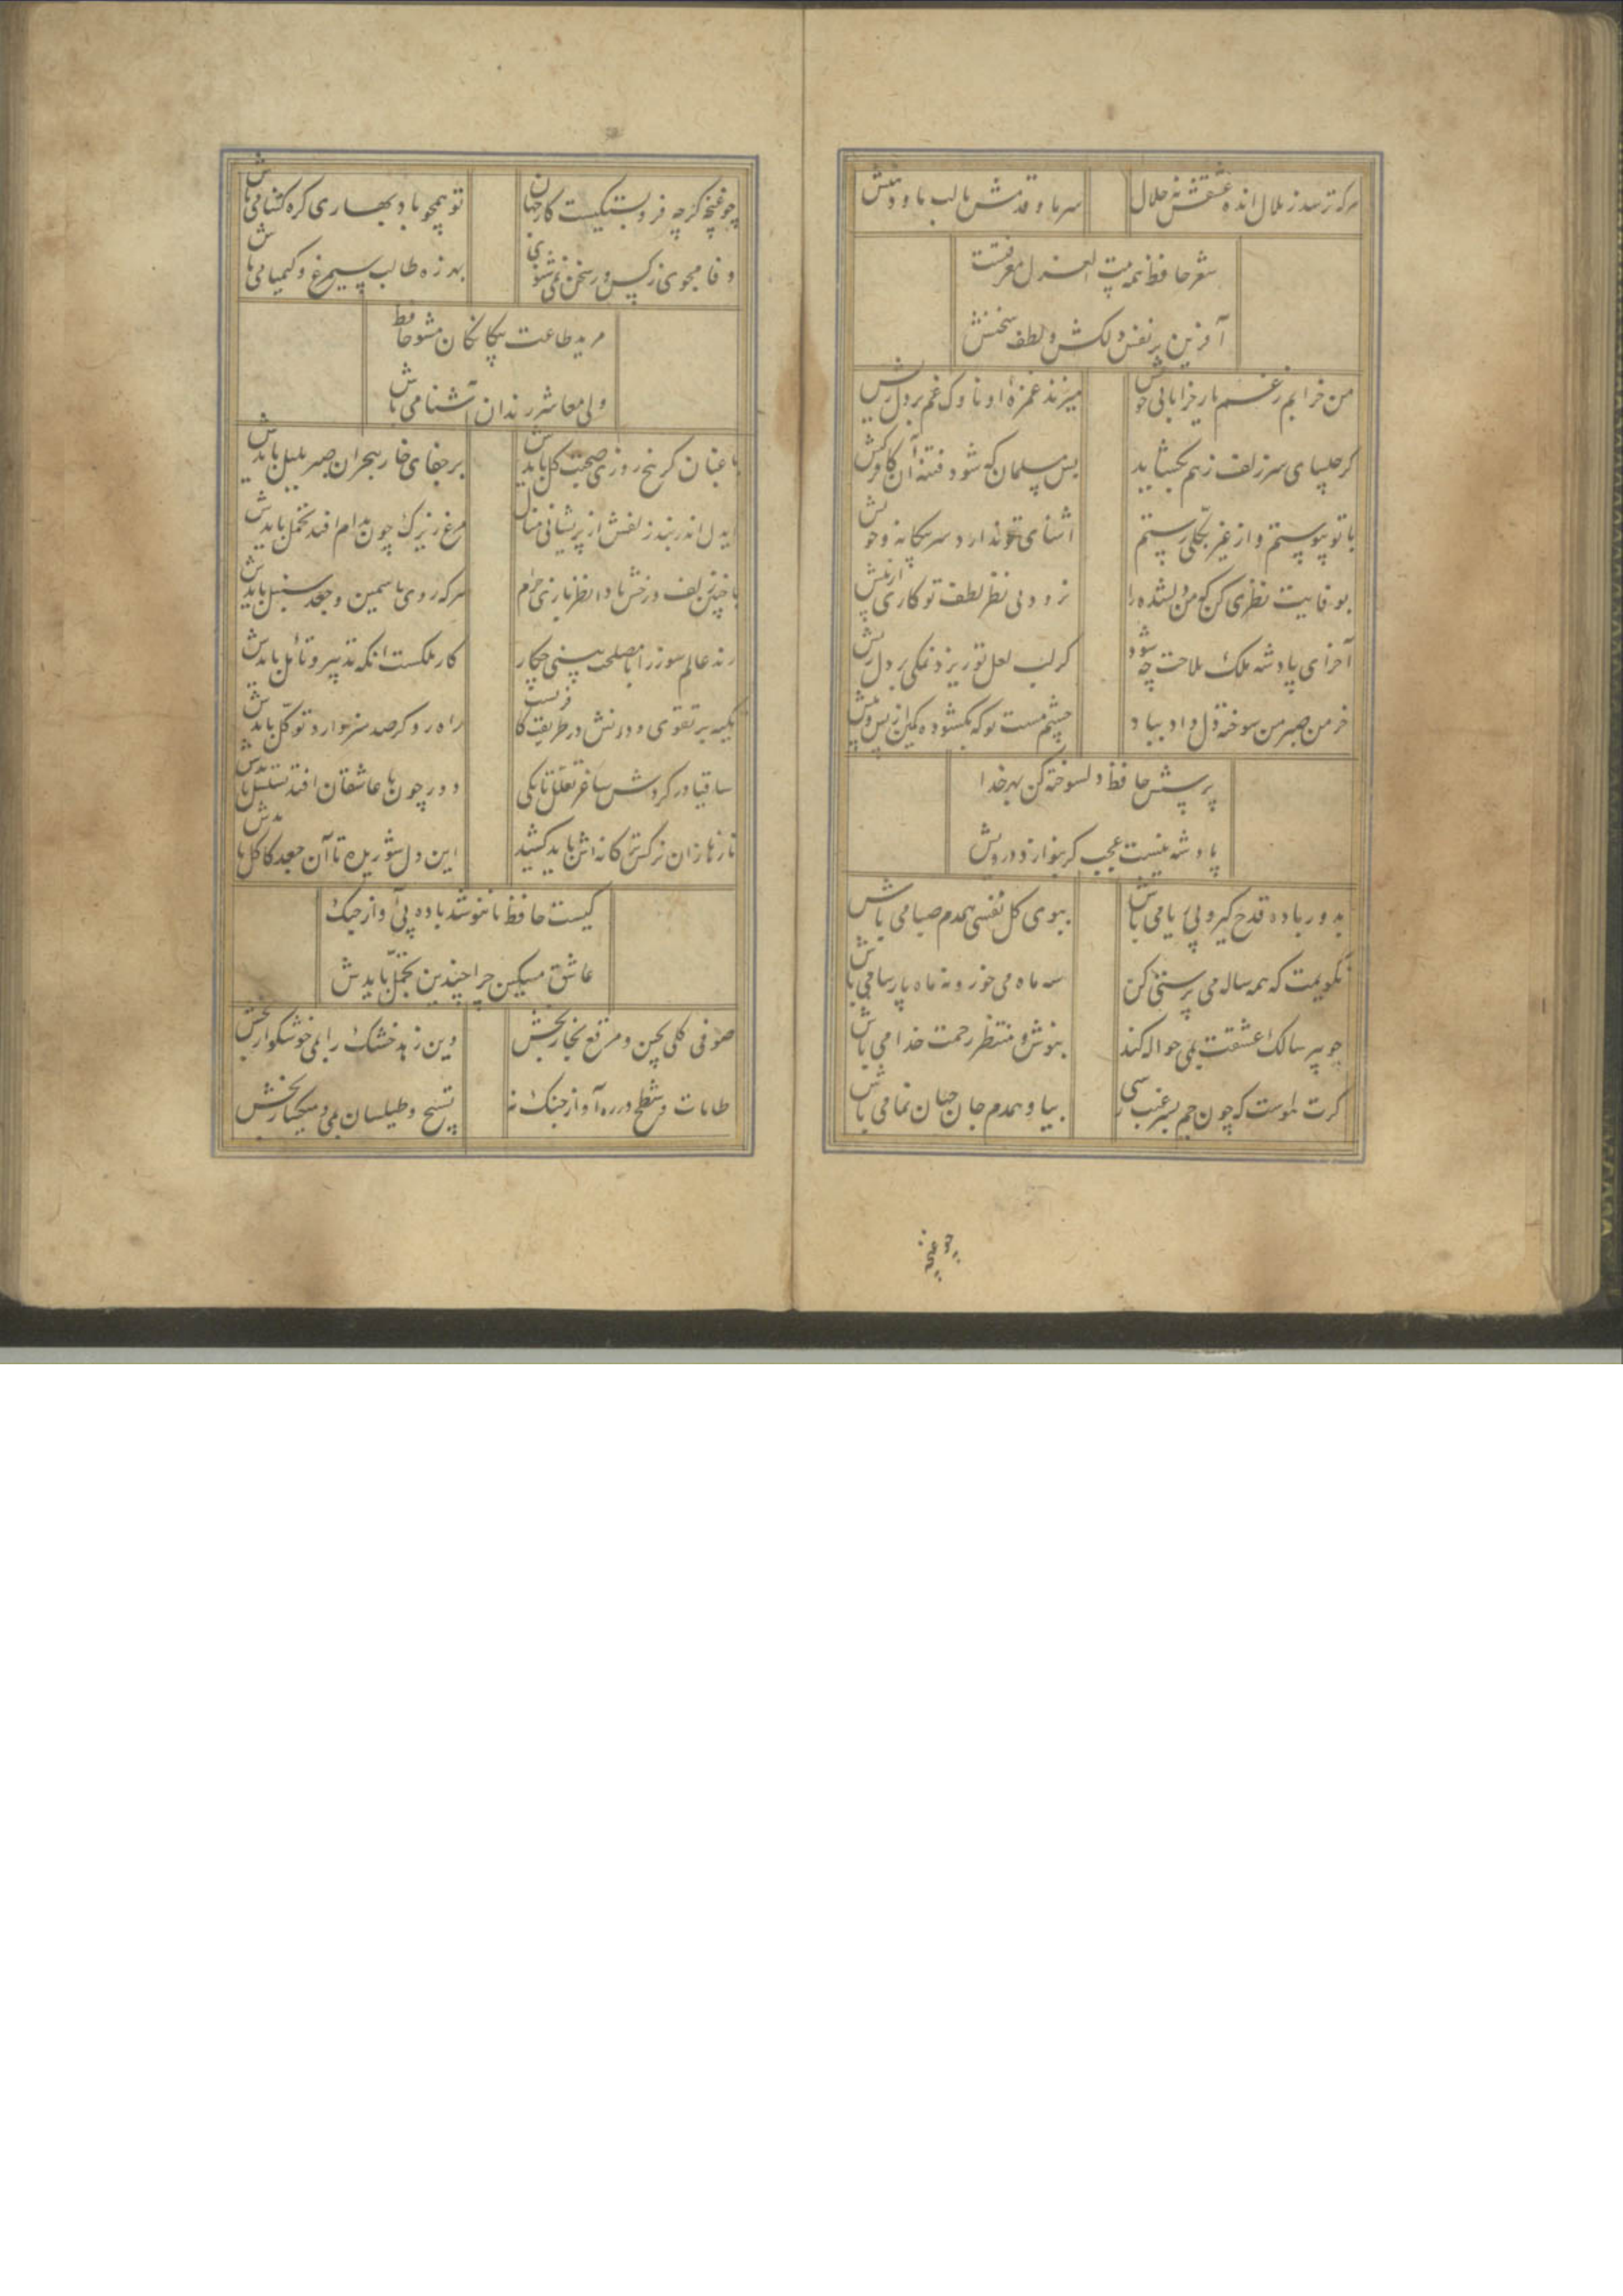 هرکه ترسد ز ملال انده عشقش نه حلال
سر ما و قدمش یا لب ما و دهنش
شعر حافظ همه بیت الغزل معرفتست
آفرین بر نفس دلکش و لطف سخنش
من خرابم ز غم یار خراباتی خویش
میزند غمزه او ناوک غم بر دل ریش
گر چلیپای سر زلف ز هم بگشاید
بس مسلمان که شود فتنه آن کافر کیش
با تو پیوستم و از غیر تو بگسستم
آشنای تو ندارد سر بیگانه و خویش
بعنایت نظری کن که من دلشده را
نرود بی نظر لطف تو کاری از پیش
آخر ای پادشه ملک ملاحت چه شود
گر لب لعل تو ریزد نمکی بر دل ریش
خرمن صبر من سوخته دل داد بباد
چشم مست تو که بگشود کمین از پس و پیش
پرسش حافظ دلسوخته کن بهر خدا
پادشه نیست عجب گر بنوازد درویش
بدور باده قدح گیر و بی ریا می باش
ببوی گل نفسی همدم صبا می باش
نگویمت که همه ساله می پرستی کن
سه ماه می خور و نه ماه پارسا می باش
چو پیر سالک عشقت بمی حواله کند
بنوش و منتظر رحمت خدا می باش
گرت هواست که چون جم بسر غیب رسی
بیا و همدم جام جهان نما می باش
چو غنچه
چو غنچه گرچه فروبستگیست کار جهان
تو همچو باد بهاری گره گشا می باش
وفا مجوی ز کس ور سخن نمی شنوی
بهرزه طالب سیمرغ و کیمیا می باش
مرید طاعت بیگانگان مشو حافظ
ولی معاشر رندان آشنا می باش
باغبان گر پنج روزی صحبت گل بایدش
بر جفای خار هجران صبر بلبل بایدش
ایدل اندر بند زلفش از پریشانی منال
مرغ زیرک چون بدام افتد تحمل بایدش
با چنین زلف و رخش بادا نظربازی حرام
هرکه روی یاسمین و جعد سنبل بایدش
رند عالم سوز را با مصلحت بینی چکار
کار ملکست آنکه تدبیر و تأمل بایدش
تکیه بر تقوی و دانش در طریقت کافریست
راه رو گر صد هنر دارد توکل بایدش
ساقیا در گردش ساغر تعلل تا بکی
دور چون با عاشقان افتد تسلسل بایدش
نازها زان نرگس مستانه اش باید کشید
این دل شوریده تا آن جعد کاکل بایدش
کیست حافظ تا ننوشد باده بی آواز چنگ
عاشق مسکین چرا چندین تجمل بایدش
صوفی گلی بچین و مرقع بخار بخش
وین زهد خشک را بمی خوشگوار بخش
طامات و شطح در ره آواز چنگ نه
تسبیح و طیلسان بمی و میگسار بخش